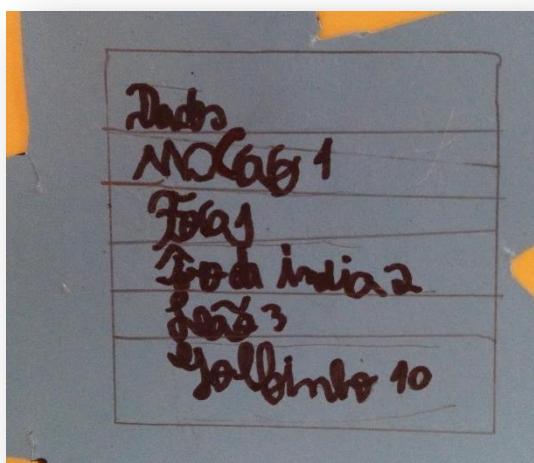 Dados
MOCaco 1
Foca 1
Po da india 2
Leão 3
Golfinho 10